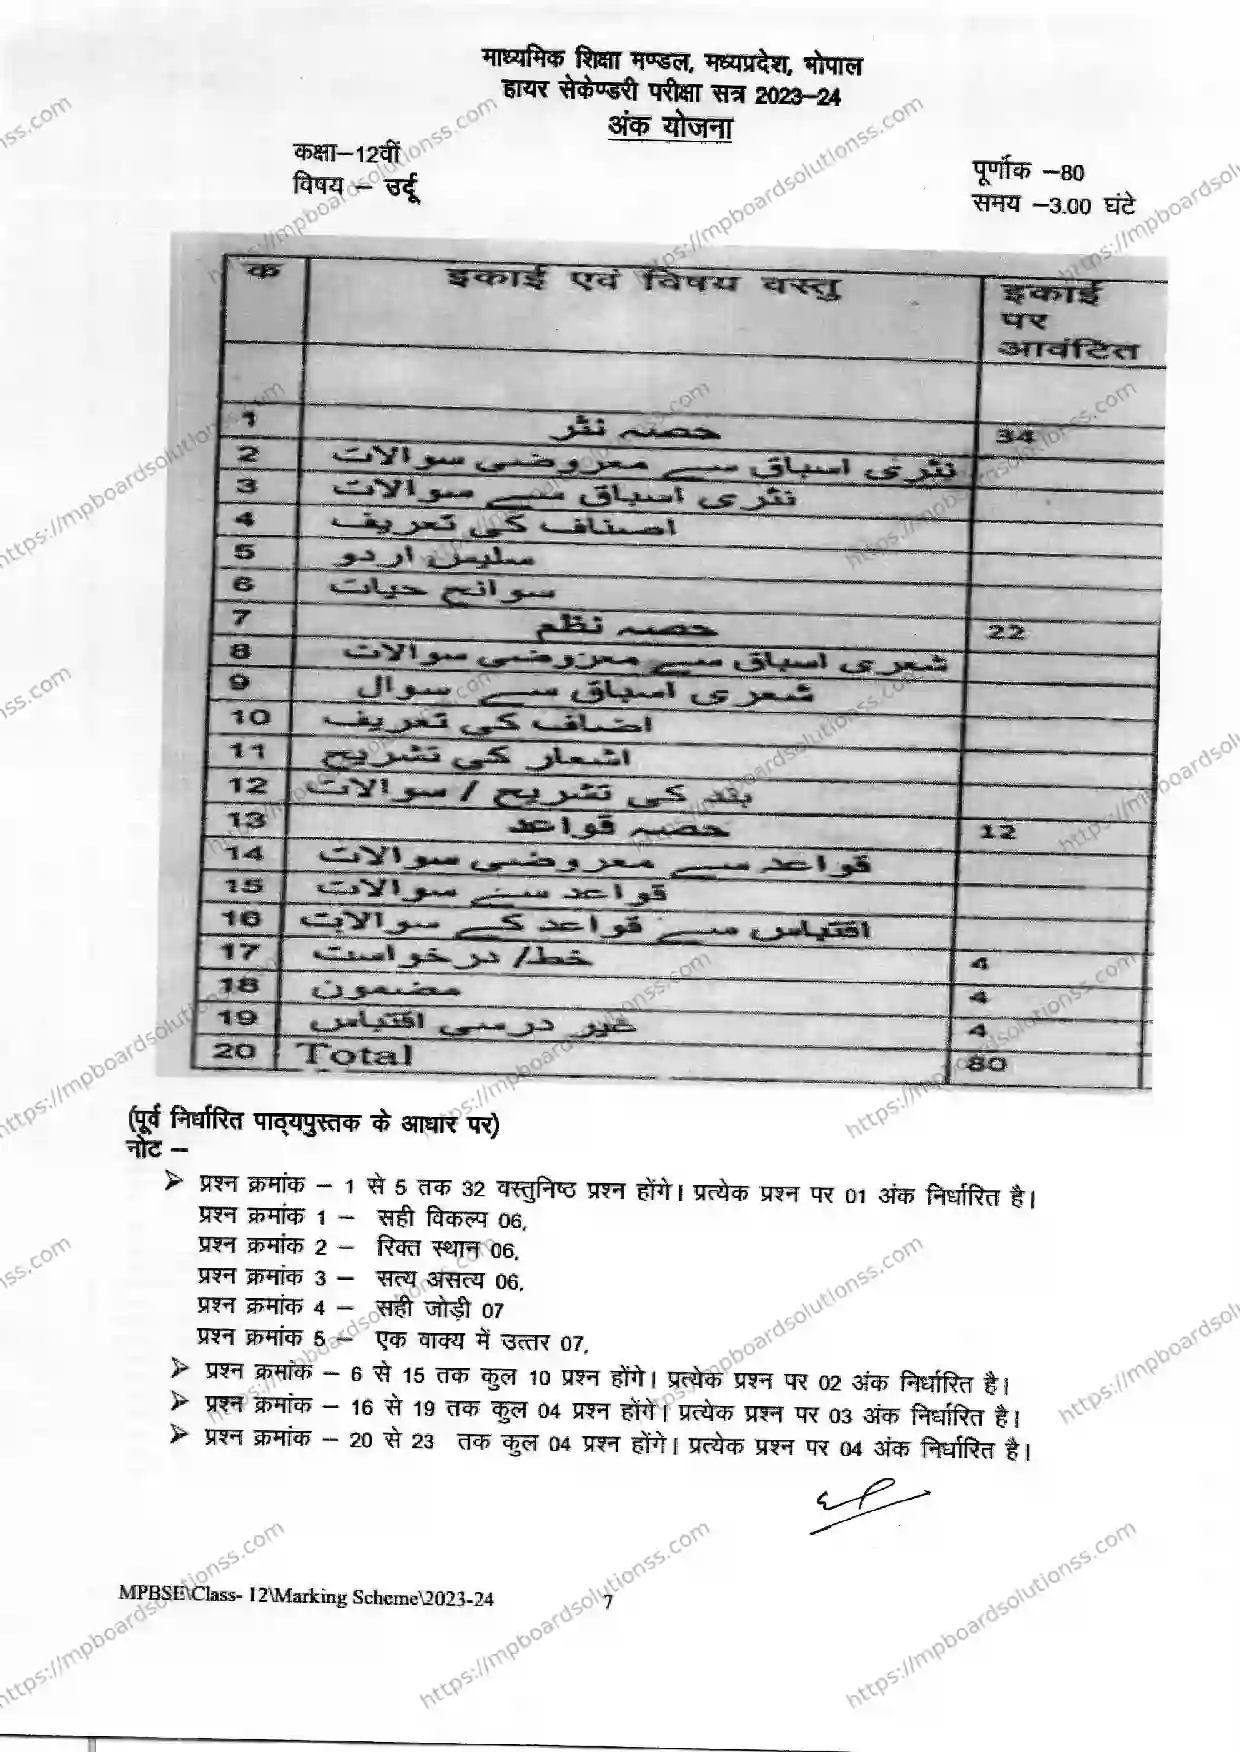 माध्यमिक शिक्षा मण्डल, मध्यप्रदेश, भोपाल
हायर सेकेण्डरी परीक्षा सत्र 2023–24
अंक योजना
कक्षा–12वीं
विषय – उर्दू
पूर्णांक –80
समय –3.00 घंटे
क इकाई एवं विषय वस्तु इकाई पर आवंटित
1 حصہ نثر 34
2 نثری اسباق سے معروضی سوالات
3 نثری اسباق سے سوالات
4 اصناف کی تعریف
5 سلیس اردو
6 سوانح حیات
7 حصہ نظم 22
8 شعری اسباق سے معروضی سوالات
9 شعری اسباق سے سوال
10 اضاف کی تعریف
11 اشعار کی تشریح
12 بند کی تشریح / سوالات
13 حصہ قواعد 12
14 قواعد سے معروضی سوالات
15 قواعد سے سوالات
16 اقتباس سے قواعد کے سوالات
17 خط/ درخواست 4
18 مضمون 4
19 غیر درسی اقتباس 4
20 Total 80
(पूर्व निर्धारित पाठ्यपुस्तक के आधार पर)
नोट –
➢ प्रश्न क्रमांक – 1 से 5 तक 32 वस्तुनिष्ठ प्रश्न होंगे। प्रत्येक प्रश्न पर 01 अंक निर्धारित है।
प्रश्न क्रमांक 1 – सही विकल्प 06,
प्रश्न क्रमांक 2 – रिक्त स्थान 06,
प्रश्न क्रमांक 3 – सत्य असत्य 06,
प्रश्न क्रमांक 4 – सही जोड़ी 07
प्रश्न क्रमांक 5 – एक वाक्य में उत्तर 07,
➢ प्रश्न क्रमांक – 6 से 15 तक कुल 10 प्रश्न होंगे। प्रत्येक प्रश्न पर 02 अंक निर्धारित है।
➢ प्रश्न क्रमांक – 16 से 19 तक कुल 04 प्रश्न होंगे। प्रत्येक प्रश्न पर 03 अंक निर्धारित है।
➢ प्रश्न क्रमांक – 20 से 23 तक कुल 04 प्रश्न होंगे। प्रत्येक प्रश्न पर 04 अंक निर्धारित है।
MPBSE\Class- 12\Marking Scheme\2023-24
7
https://mpboardsolutionss.com